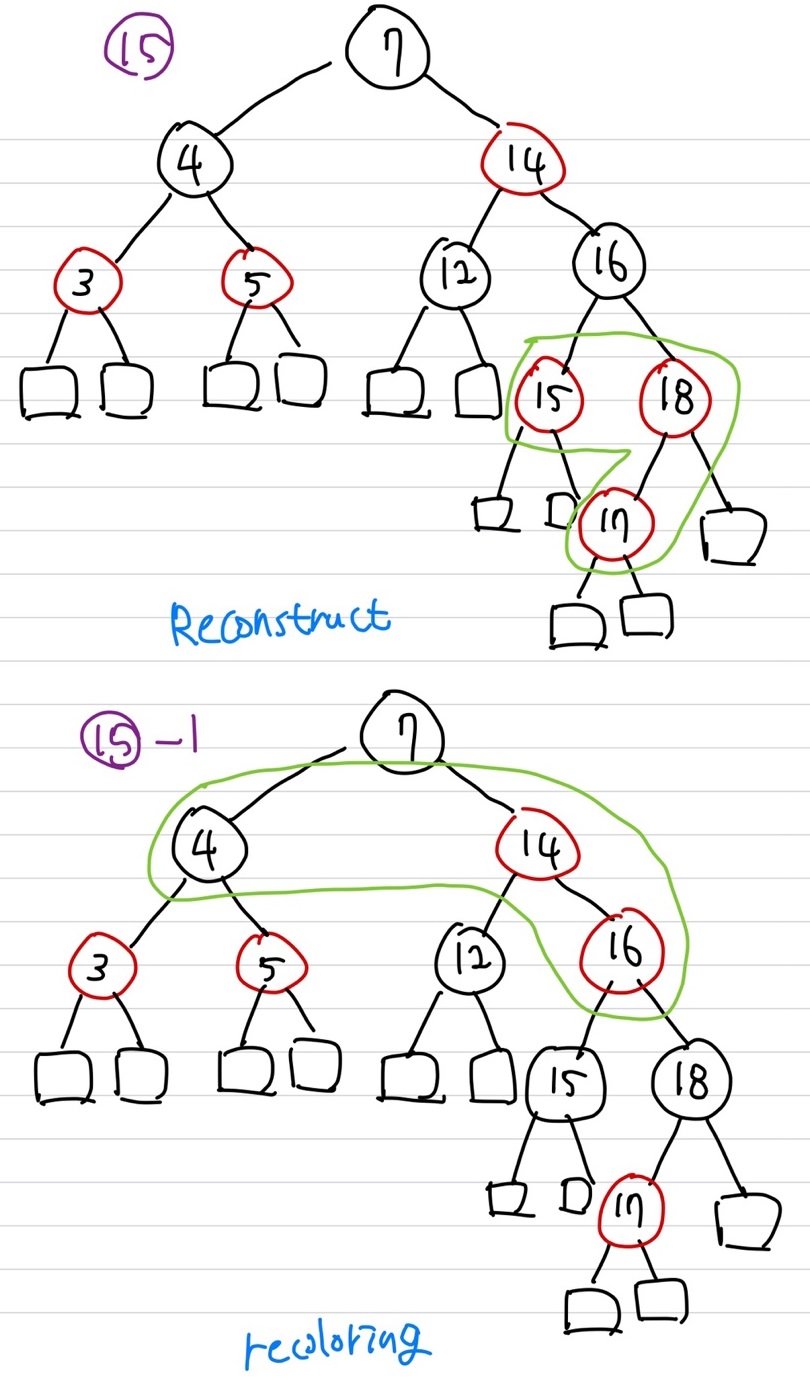 15
7
4
14
3
5
12
16
15
18
17
Reconstruct
15 -1
7
4
14
3
5
12
16
15
18
17
recoloring